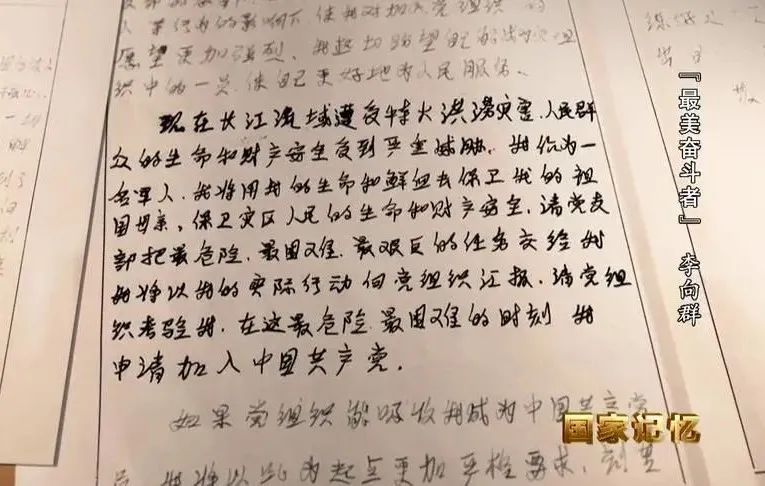 愿望更加强烈。我赶切盼望自己能成为党组
织中的一员,使自己更好地为人民服务。
现在长江流域遭受特大洪涝灾害,人民群
众的生命和财产安全受到严重威胁,我作为一
名军人,我将用我的生命和鲜血去保卫我的祖
国母亲,保卫灾区人民的生命和财产安全,请党支
部把最危险、最困难、最艰巨的任务交给我
我将以我的实际行动向党组织汇报,请党组
织考验我,在这最危险、最困难的时刻 我
申请加入中国共产党。
如果党组织能吸收我成为中国共产党
员,我将以此为起点更加严格要求,刻苦
『最美奋斗者』 李向群
国家记忆